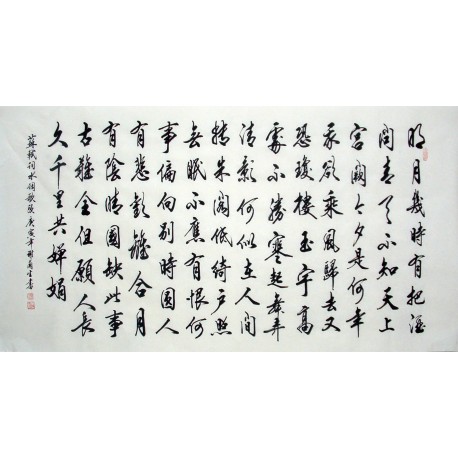 明月幾時有把酒
問青天不知天上
宮闕今夕是何年
我欲乘風歸去又
恐瓊樓玉宇高
處不勝寒起舞弄
清影何似在人間
轉朱閣低綺戶照
無眠不應有恨何
事偏向別時圓人
有悲歡離合月
有陰晴圓缺此事
古難全但願人長
久千里共嬋娟
蘇軾詞水調歌頭庚寅年